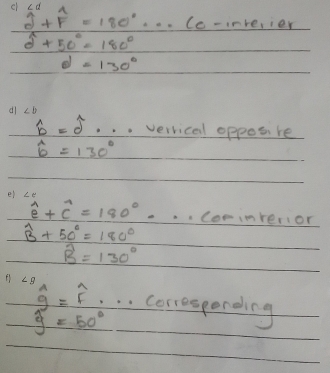 c) ∠d
d̂ + F̂ = 180° ... Co-interier
d̂ + 50° = 180°
d = 130°
d) ∠b
b̂ = d̂ ... vertical opposite
b̂ = 130°
e) ∠e
ê + ĉ = 180° ... Cominterior
B̂ + 50° = 180°
B̂ = 130°
f) ∠g
ĝ = F̂ ... Corresponding
ĝ = 50°